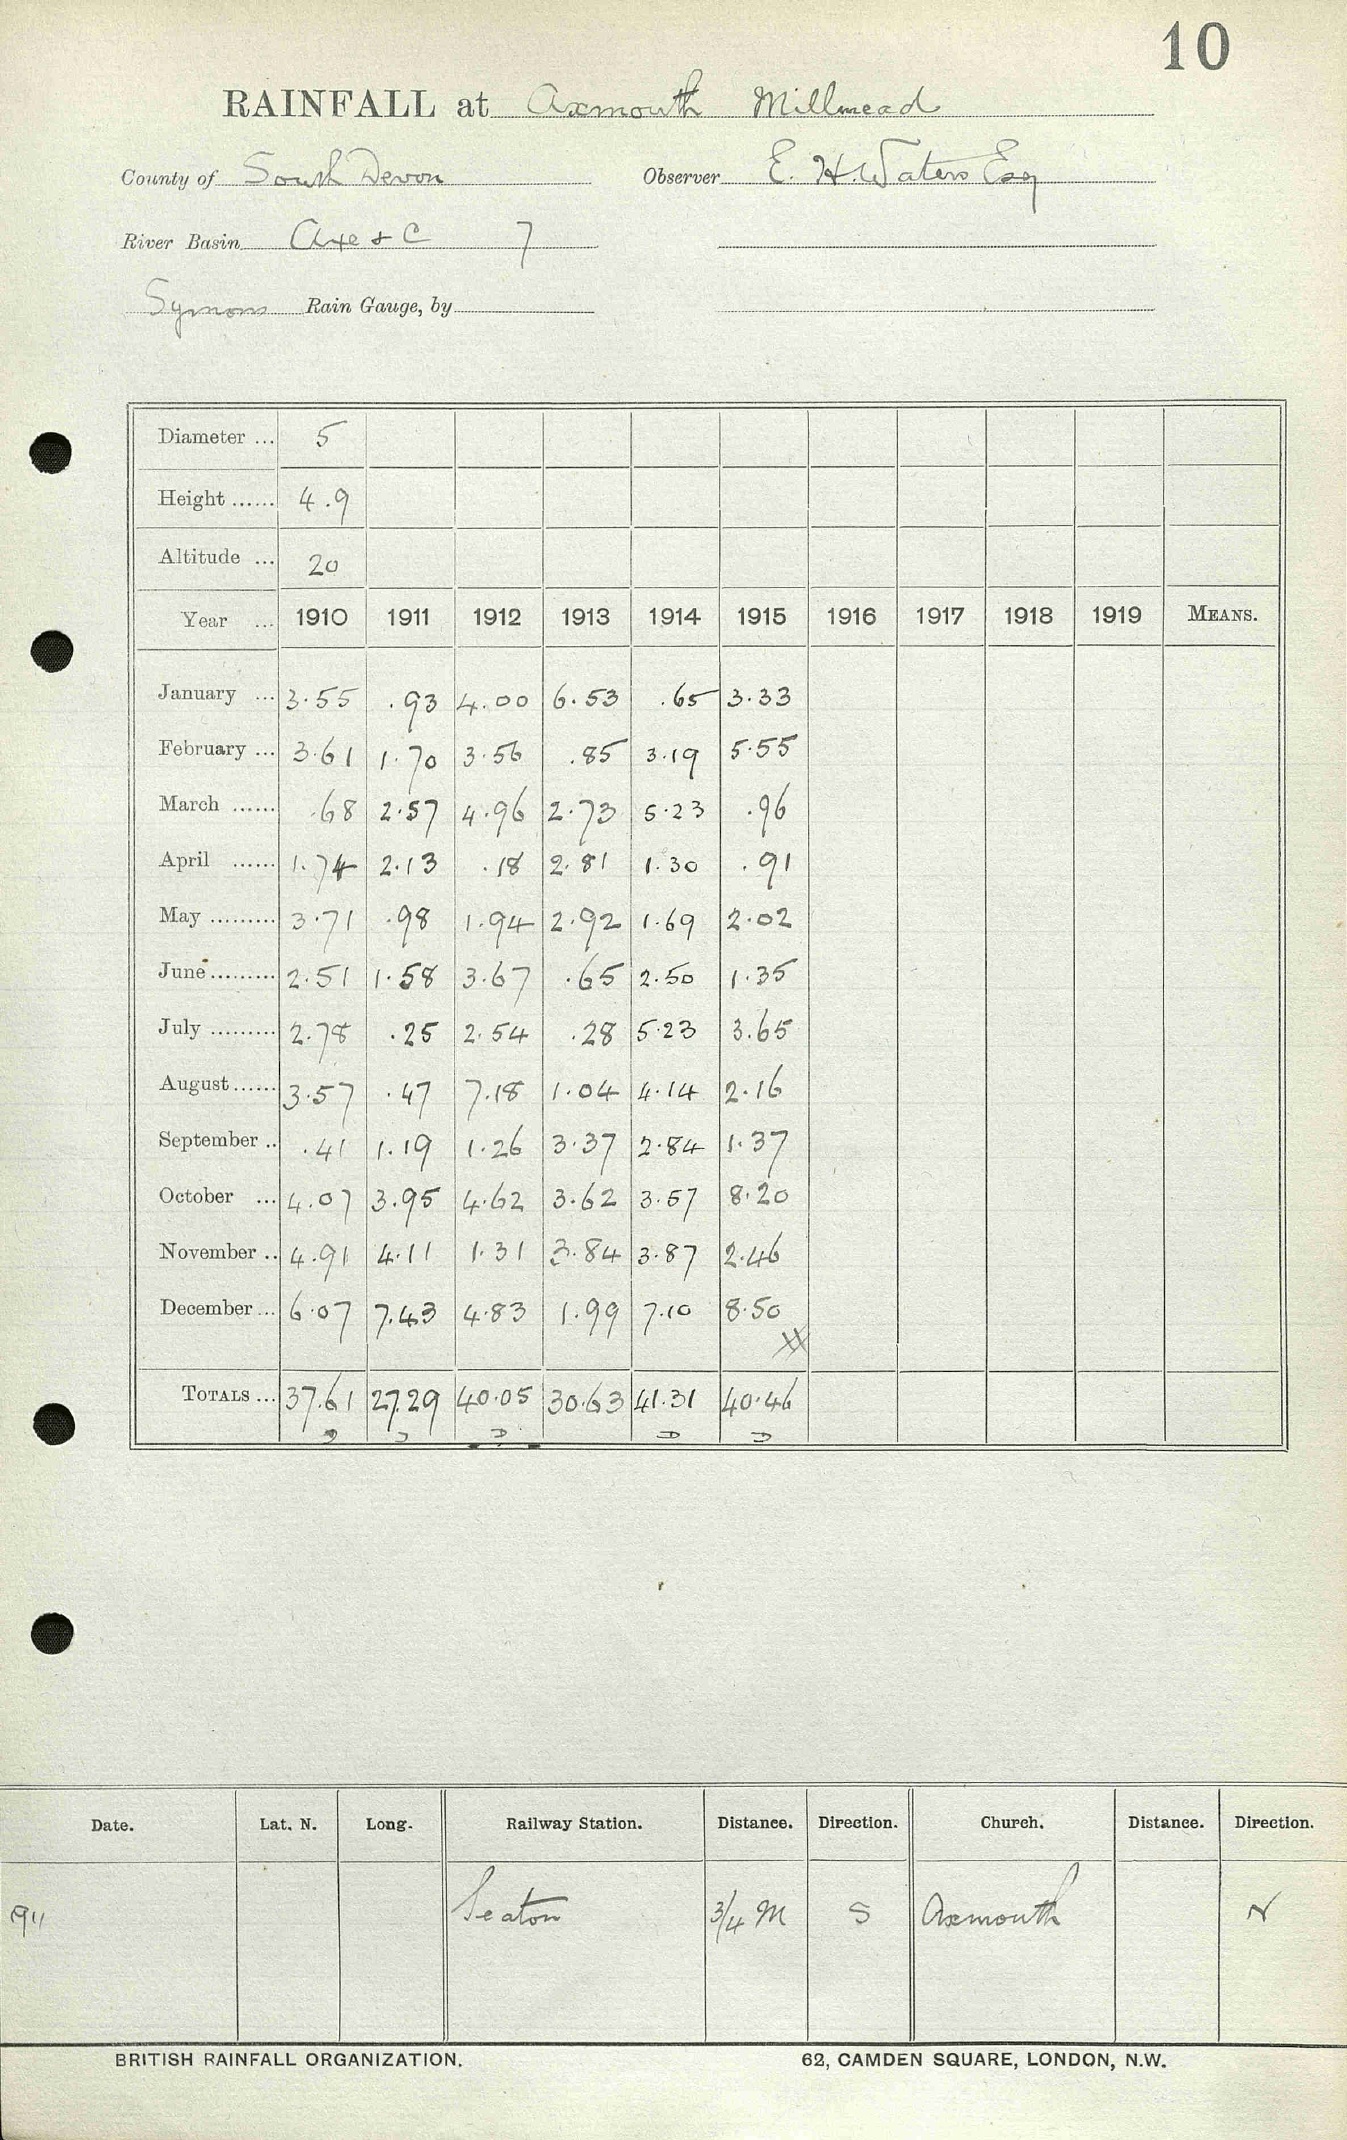 10
RAINFALL at Axmouth Millmead
County of South Devon Observer E. H. Waters Esq
River Basin Axe & C 7
Symons Rain Gauge, by
Diameter ... 5
Height ...... 4.9
Altitude ... 20
Year ... 1910 1911 1912 1913 1914 1915 1916 1917 1918 1919 MEANS.
January ... 3.55 .93 4.00 6.53 .65 3.33
February ... 3.61 1.70 3.56 .85 3.19 5.55
March ...... .68 2.57 4.96 2.73 5.23 .96
April ...... 1.74 2.13 .18 2.81 1.30 .91
May ......... 3.71 .98 1.94 2.92 1.69 2.02
June ......... 2.51 1.58 3.67 .65 2.50 1.35
July ......... 2.78 .25 2.54 .28 5.23 3.65
August ...... 3.57 .47 7.18 1.04 4.14 2.16
September .. .41 1.19 1.26 3.37 2.84 1.37
October ... 4.07 3.95 4.62 3.62 3.57 8.20
November .. 4.91 4.11 1.31 3.84 3.87 2.46
December ... 6.07 7.43 4.83 1.99 7.10 8.50
TOTALS ... 37.61 27.29 40.05 30.63 41.31 40.46
Date. Lat. N. Long. Railway Station. Distance. Direction. Church. Distance. Direction.
1911 Seaton 3/4 M S Axmouth N
BRITISH RAINFALL ORGANIZATION. 62, CAMDEN SQUARE, LONDON, N.W.